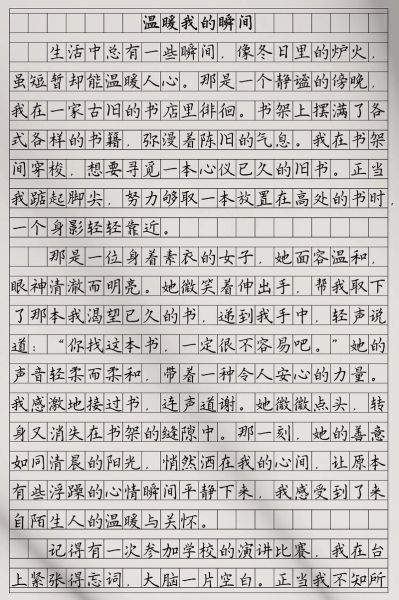 温暖我的瞬间
生活中总有一些瞬间，像冬日里的炉火，
虽短暂却能温暖人心。那是一个静谧的傍晚，
我在一家古旧的书店里徘徊。书架上摆满了各
式各样的书籍，弥漫着陈旧的气息。我在书架
间穿梭，想要寻觅一本心仪已久的旧书。正当
我踮起脚尖，努力够取一本放置在高处的书时，
一个身影轻轻靠近。
那是一位身着素衣的女子，她面容温和，
眼神清澈而明亮。她微笑着伸出手，帮我取下
了那本我渴望已久的书，递到我手中，轻声说
道：“你找这本书，一定很不容易吧。”她的
声音轻柔而柔和，带着一种令人安心的力量。
我感激地接过书，连声道谢。她微微点头，转
身又消失在书架的缝隙中。那一刻，她的善意
如同清晨的阳光，悄然洒在我的心间，让原本
有些浮躁的心情瞬间平静下来，我感受到了来
自陌生人的温暖与关怀。
记得有一次参加学校的演讲比赛，我在台
上紧张得忘词，大脑一片空白。正当我不知所